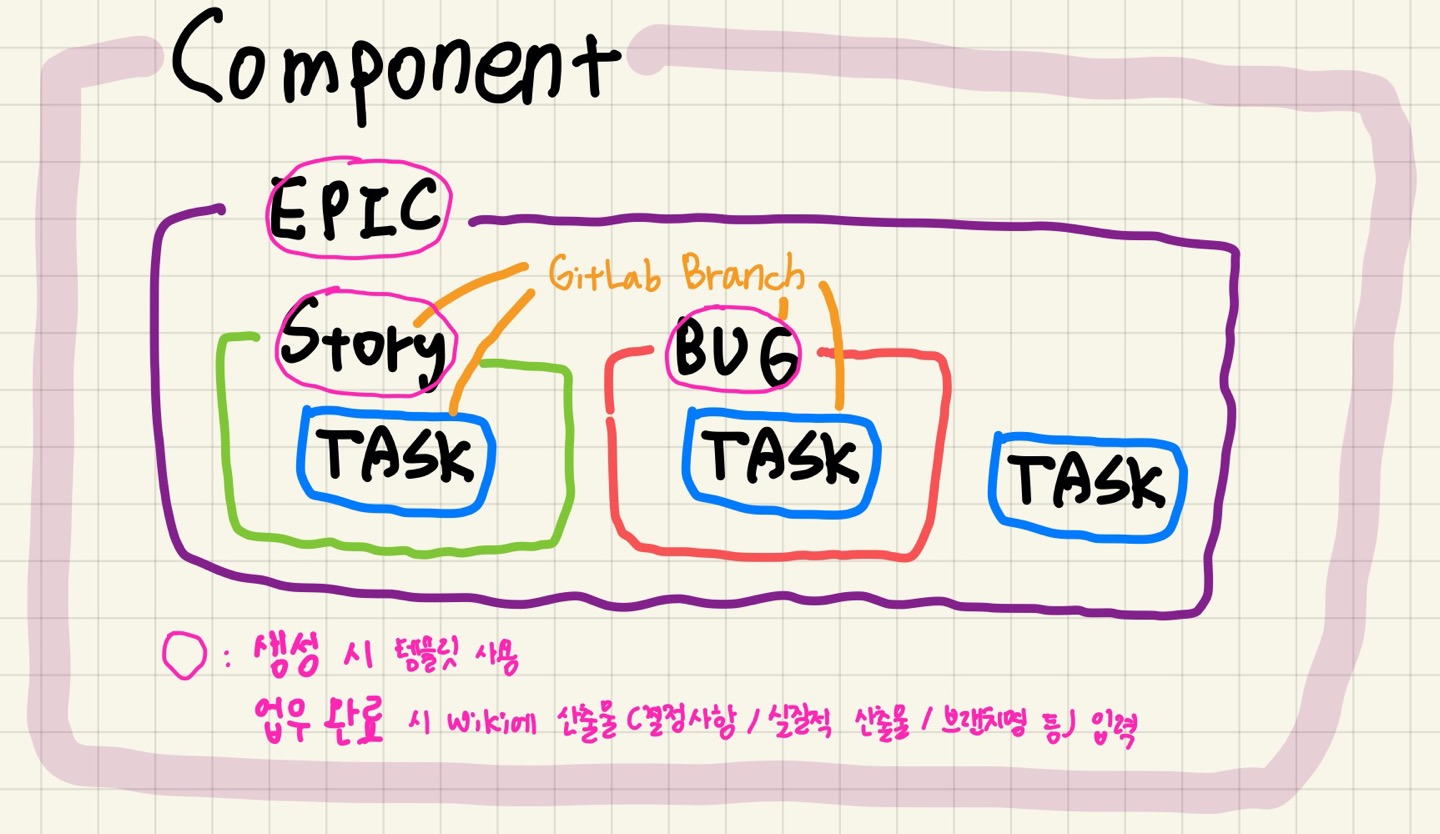 Component
EPIC
GitLab Branch
Story
BUG
TASK
TASK
TASK
: 생성 시 템플릿 사용
업무 완료 시 wiki에 산출물 (결정사항 / 실질적 산출물 / 브랜치명 등) 입력